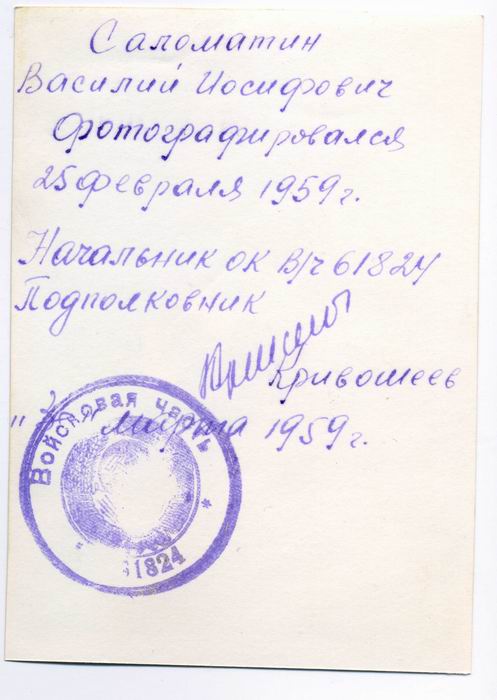 Саломатин
Василий Иосифович
Фотографировался
25 февраля 1959 г.
Начальник ОК В/Ч 61824
Подполковник
Кривошеев
" " марта 1959 г.
Войсковая часть
61824